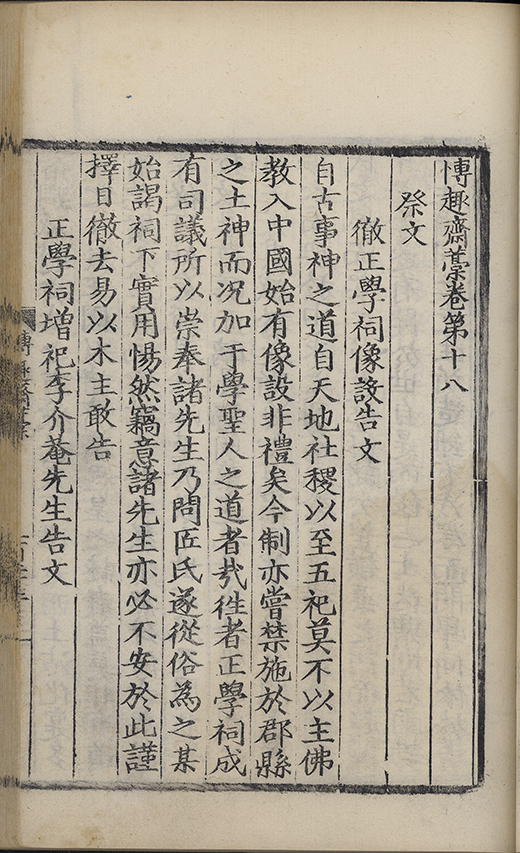 愽趣齋藁卷第十八
祭文
徹正學祠像設告文
自古事神之道自天地社稷以至五祀莫不以主佛
教入中國始有像設非禮矣今制亦嘗禁施於郡縣
之土神而况加于學聖人之道者㢤徃者正學祠成
有司議所以崇奉諸先生乃問匠氏遂從俗為之某
始謁祠下實用惕然竊意諸先生亦必不安於此謹
擇日徹去易以木主敢告
正學祠增祀李介菴先生告文